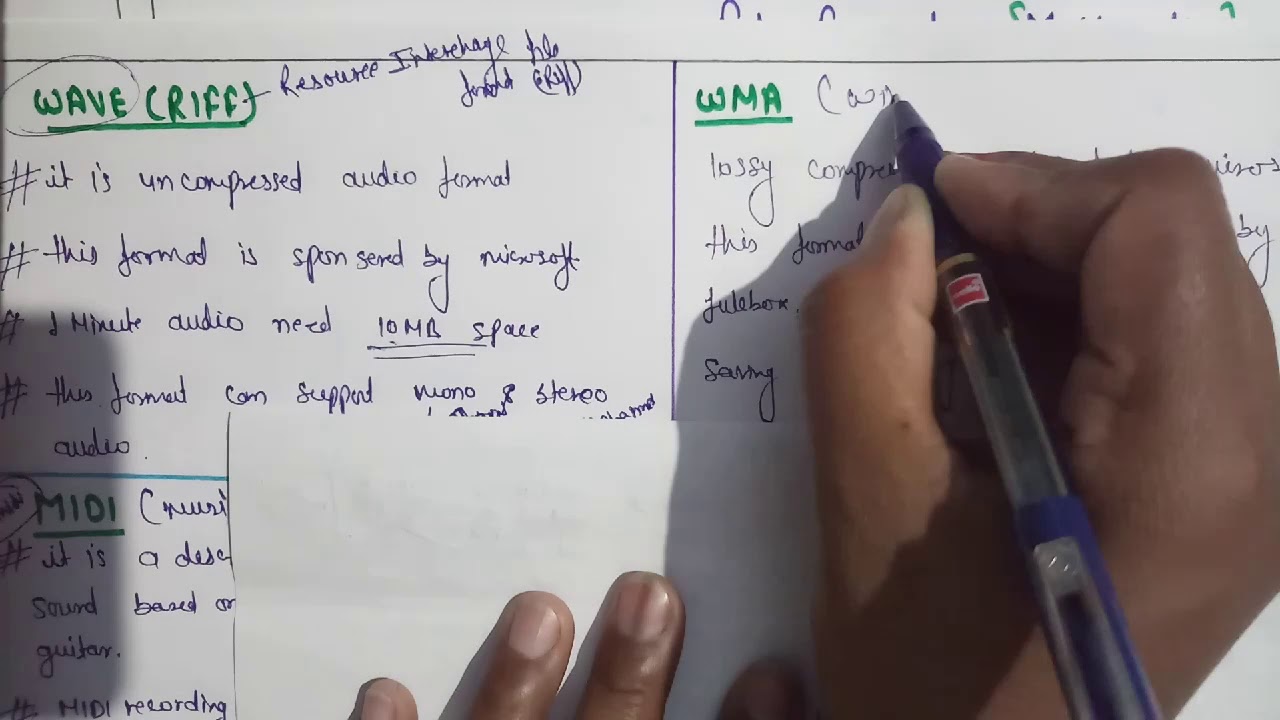 WAVE (RIFF) - Resource Interchage file
format (Riff)
# it is uncompressed audio format
# this format is sponsered by microsoft
# 1 Minute audio need 10MB space
# this format can support mono & stereo
audio.
MIDI (musi
# it is a desc
sound based on
guitar.
# MIDI recording
WMA (win
lossy
this format by
Jukebox.
Saving